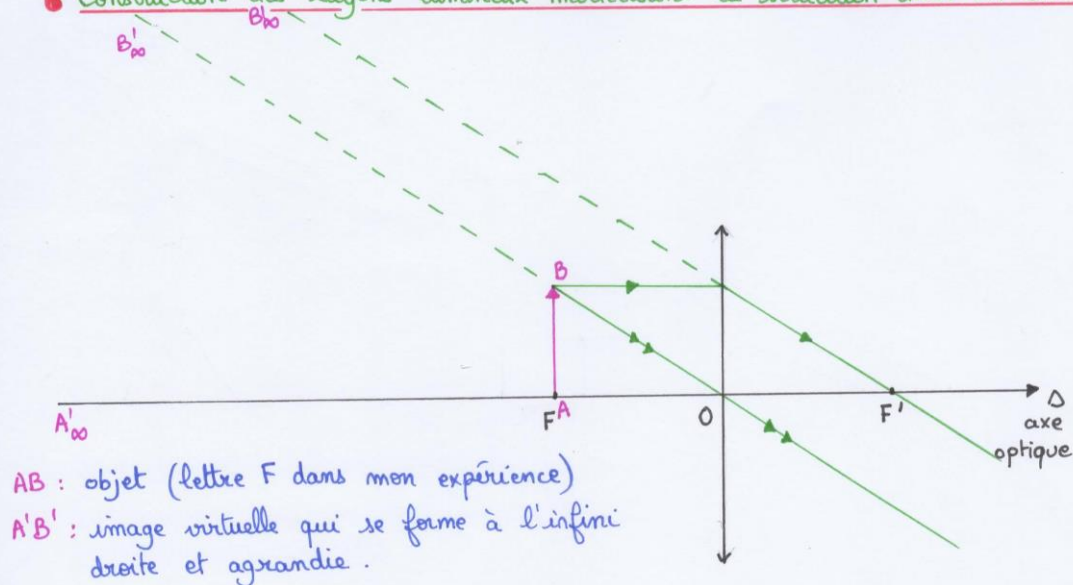 B'∞
B'∞
B
A'∞
F A
O
F'
Δ
axe
optique
AB : objet (lettre F dans mon expérience)
A'B' : image virtuelle qui se forme à l'infini
droite et agrandie.